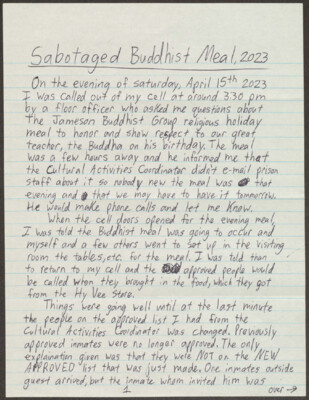 Sabotaged Buddhist Meal, 2023
On the evening of saturday, April 15th 2023
I was called out of my cell at around 3:30 pm
by a floor officer who asked me questions about
The Jameson Buddhist Group religious holiday
meal to honor and show respect to our great
teacher, the Buddha on his birthday. The meal
was a few hours away and he informed me that
the Cultural Activities Coordinator didn't e-mail prison
staff about it so nobody new the meal was that
evening and that we may have to have it tommorrow.
He would make phone calls and let me know.
When the cell doors opened for the evening meal,
I was told the Buddhist meal was going to occur and
myself and a few others went to set up in the visiting
room the tables, etc. for the meal. I was told than
to return to my cell and the approved people would
be called when they brought in the food, which they got
from the Hy Vee Store.
Things were going well until at the last minute
the people on the approved list I had from the
Cultural Activities Coordinator was changed. Previously
approved inmates were no longer approved. The only
explaination given was that they were NOT on the NEW
APPROVED list that was just made. One inmates outside
guest arrived, but the inmate whom invited him was
1
over →